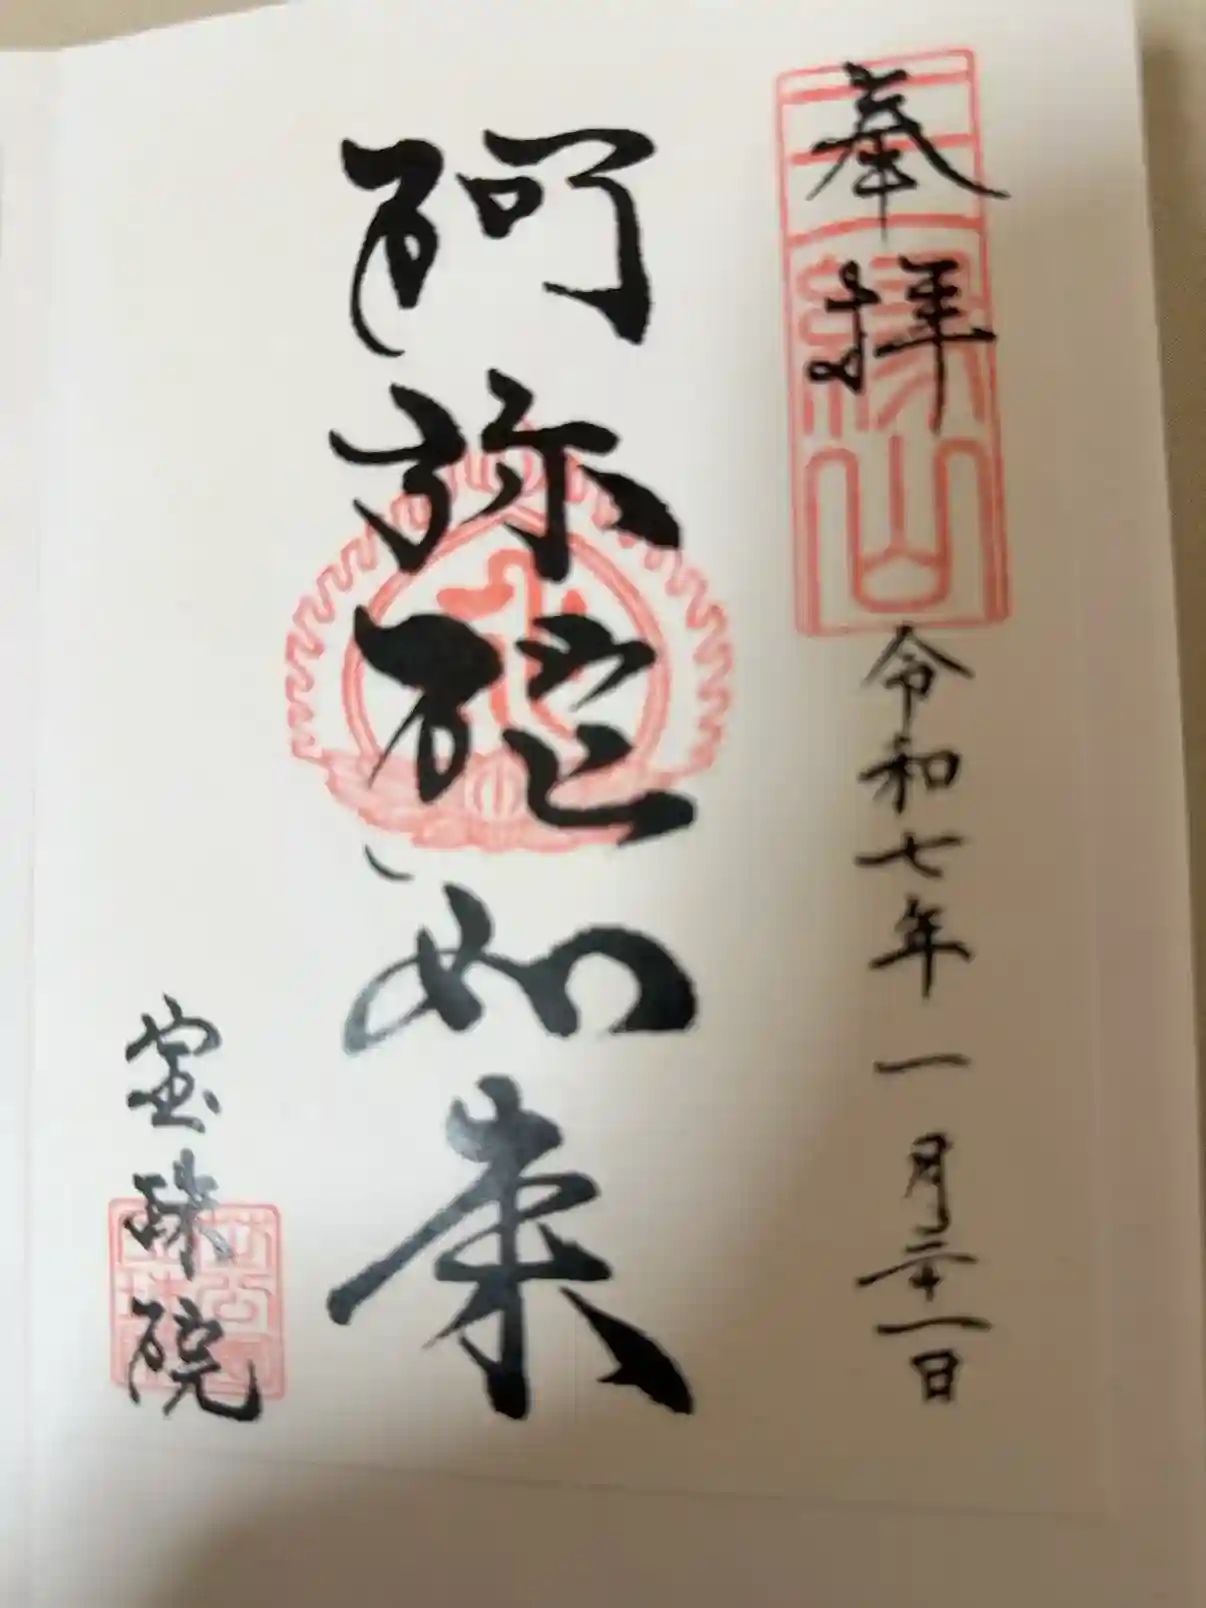 奉拝
三縁山
令和七年一月二十一日
阿弥陀如来
宝珠院